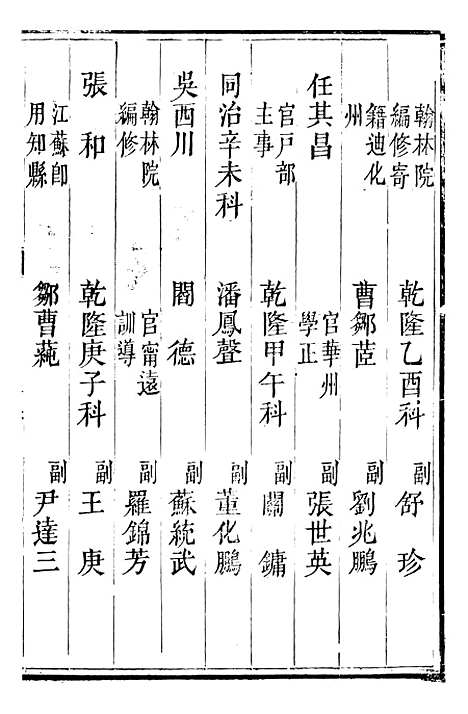 翰林院
編修寄
籍迪化
州
任其昌
官戶部
主事
同治辛未科
吳西川
翰林院
編修
張和
江蘇卽
用知縣
乾隆乙酉科
曹鄒茝
官華州
學正
乾隆甲午科
潘鳳聲
閻德
官甯遠
訓導
乾隆庚子科
鄒曹
副舒珍
副劉兆鵬
副張世英
副關鏞
副董化鵬
副蘇統武
副羅錦芳
副王庚
副尹達三